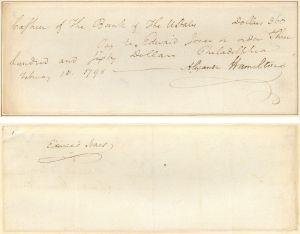 Cashier of the Bank of the U States Dollars 360
Pay to Edward Jones or order Three
hundred and sixty Dollars Philadelphia
February 10. 1795
Alexander Hamilton
Edward Jones